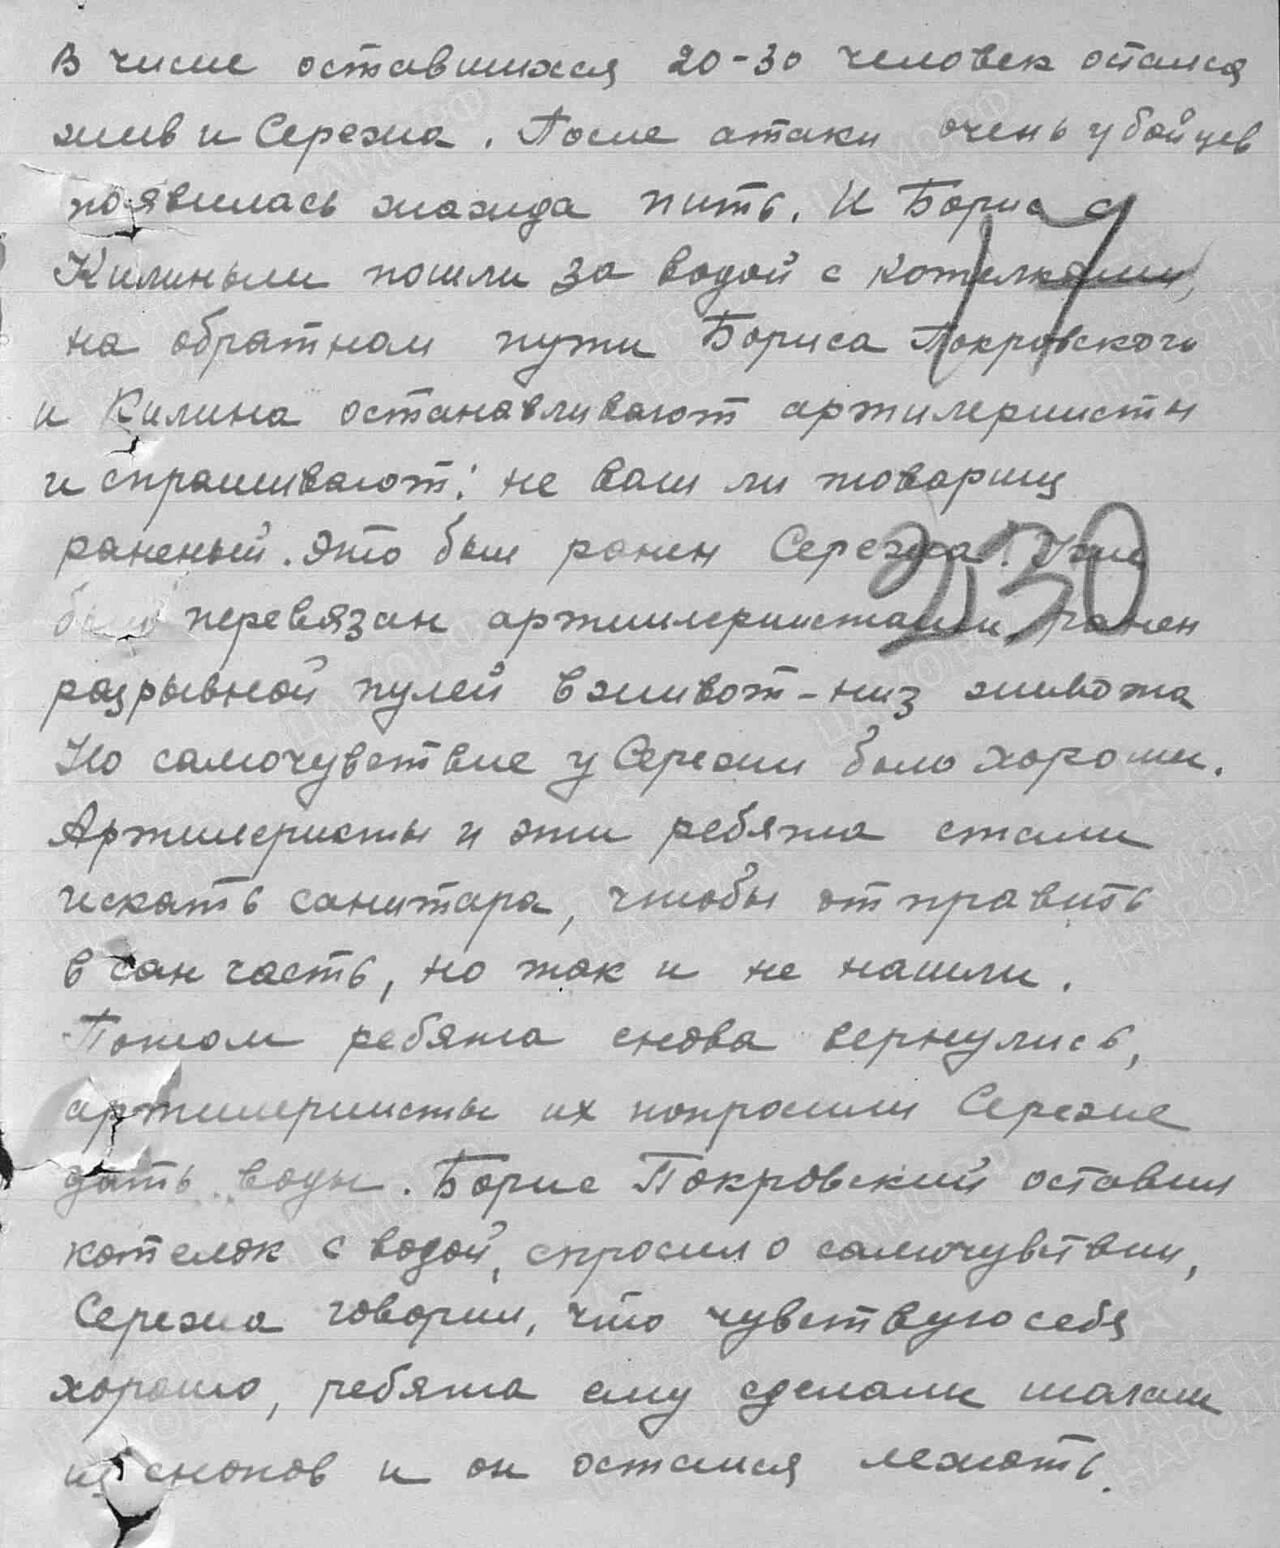 В числе оставшихся 20-30 человек остался
жив и Сережа. После атаки очень у бойцев
появилась жажда пить. И Борис с
Килиным пошли за водой с котелками,
17
на обратном пути Бориса Покровского
и Килина останавливают артилериисты
и спрашивают: не ваш ли товарищ
раненый. Это был ранен Сережа. Уже
230
был перевязан артиилериистами, ранен
разрывной пулей в живот-низ живота
Но самочувствие у Сережи было хорошее.
Артилеристы и эти ребята стали
искать санитара, чтобы отправить
в сан часть, но так и не нашли.
Потом ребята снова вернулись,
артилериисты их попросили Сереже
дать воды. Борис Покровский оставил
котелок с водой, спросил о самочувствии,
Сережа говорил, что чувствую себя
хорошо, ребята ему сделали шалаш
из снопов и он остался лежать.
ЦАМО РФ
ПАМЯТЬ НАРОДА